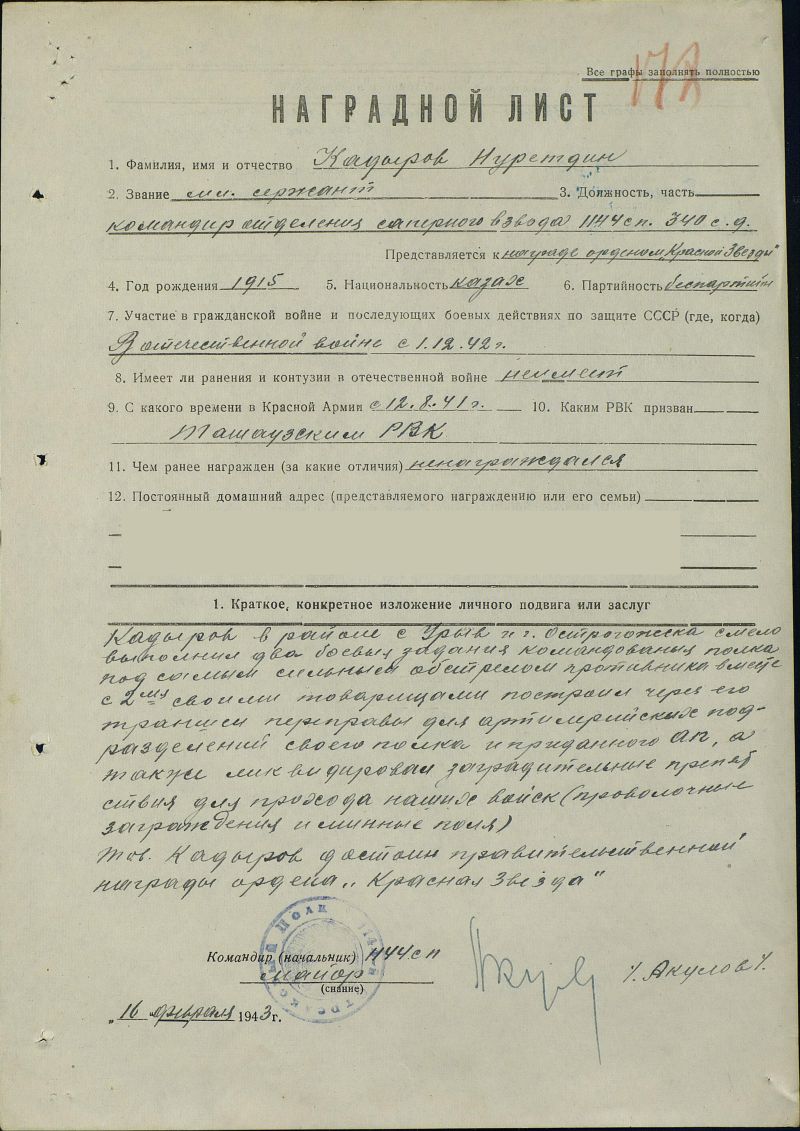 172
Все графы заполнять полностью
НАГРАДНОЙ ЛИСТ
1. Фамилия, имя и отчество Кадыров Нуретдин
2. Звание мл. сержант 3. Должность, часть
командир отделения саперного взвода 1144 сп. 340 с.д.
Представляется к награде орденом „Красной Звезды"
4. Год рождения 1915 5. Национальность казах 6. Партийность беспартийн
7. Участие в гражданской войне и последующих боевых действиях по защите СССР (где, когда)
В отечественной войне с 1.12.42 г.
8. Имеет ли ранения и контузии в отечественной войне неимеет
9. С какого времени в Красной Армии с 12.8.41 г. 10. Каким РВК призван
Ташаузским РВК
11. Чем ранее награжден (за какие отличия) ненаграждался
12. Постоянный домашний адрес (представляемого награждению или его семьи)
1. Краткое, конкретное изложение личного подвига или заслуг
Кадыров в районе с Урыв и г. Острогожска смело
выполнил два боевых задания командования полка
под самым сильным обстрелом противника вместе
с 2мя своими товарищами построил через его
траншеи переправы для артиллерийских под-
разделений своего полка и приданного АП, а
также ликвидировал заградительные препят
ствия для прохода наших войск (проволочные
заграждения и минные поля)
Тов. Кадыров достоин правительственной
награды ордена „Красная Звезда"
Командир (начальник) 1144 сп
майор
(звание)
/. Акулов /.
„16 февраля 1943 г.